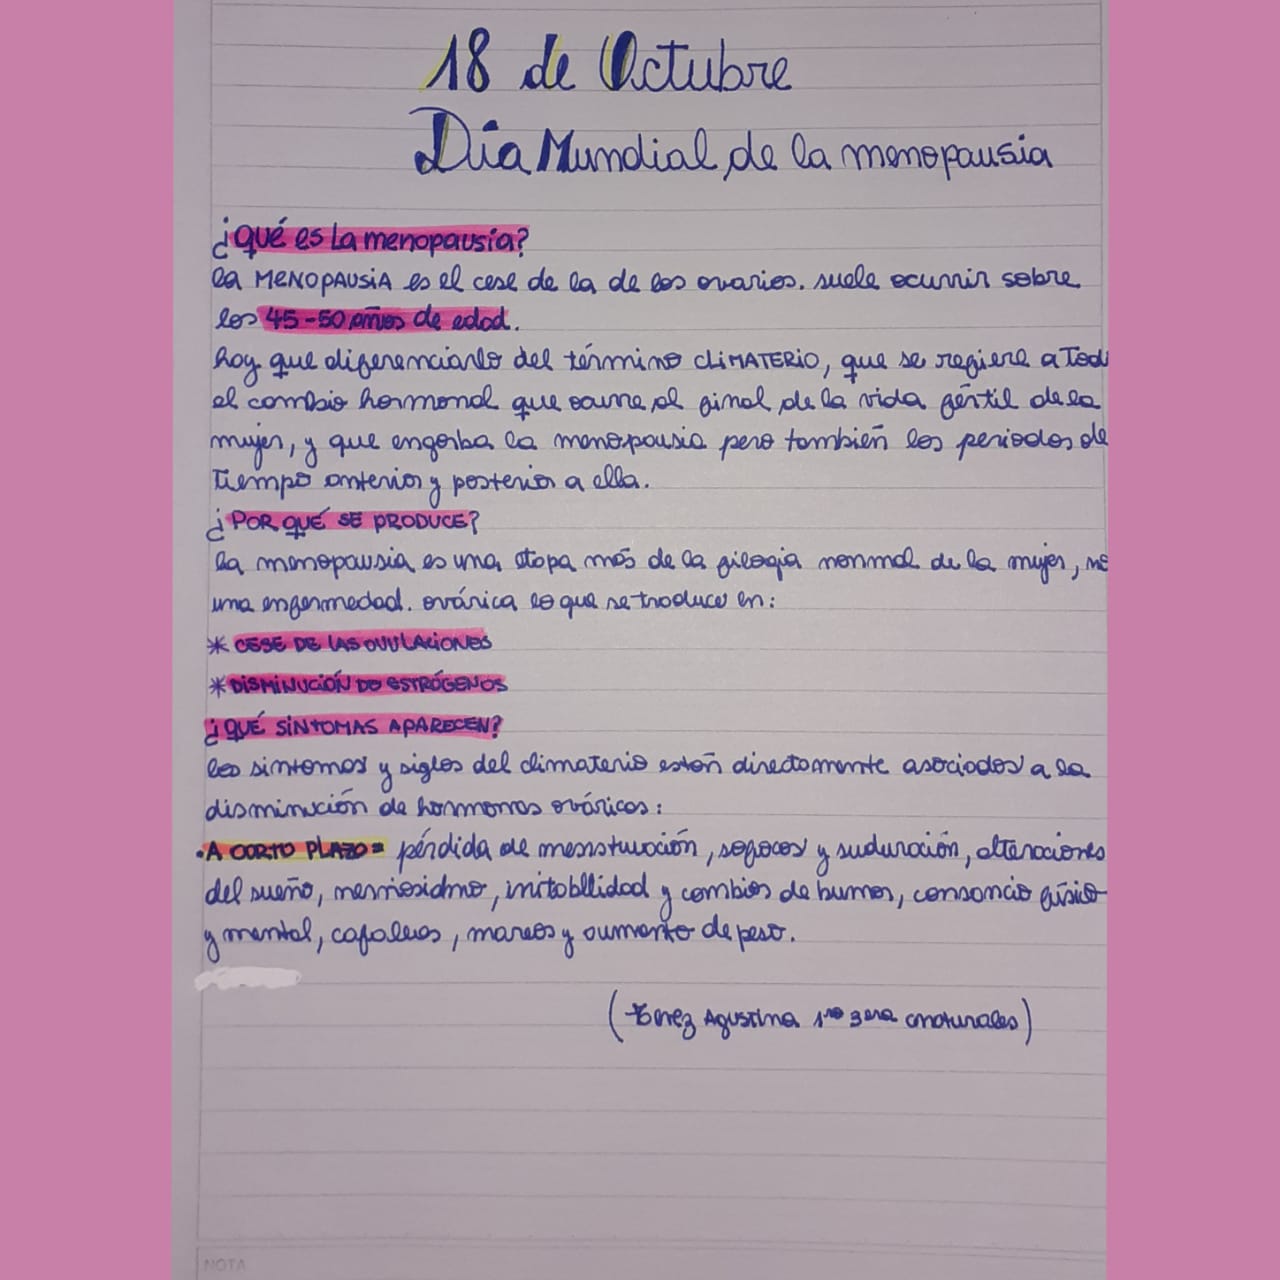 18 de Octubre
Día Mundial de la menopausia
¿qué es La menopausia?
la MENOPAUSiA es el cese de la de los ovarios. suele ocurrir sobre
los 45-50 años de edad.
hay que diferenciarlo del término CLiMATERIO, que se refiere a Tod
el cambio hormonal que ocurre al final de la vida fértil de la
mujer, y que engorba la menopausia pero también los periodos de
Tiempo anterior y posterior a ella.
¿POR QUÉ SE PRODUCE?
la menopausia es una etapa más de la filogia normal de la mujer, no
una enfermedad. ovárica lo que se traduce en:
* CESE DE LAS OVULACiONES
* DiSMiNUCiÓN DE ESTRÓGENOS
¿QUÉ SÍNTOMAS APARECEN?
los sintomas y siglos del climaterio están directamente asociados a la
disminución de hormonas ováricas:
• A CORTO PLAZO= pérdida de menstruación, sofocos y suduración, alteraciones
del sueño, nerviosidmo, irritabllidad y cambios de humor, cansancio físico
y mental, cafaleas, mareos y aumento de peso.
( Agustina 1ro 3era cnaturales)
NOTA